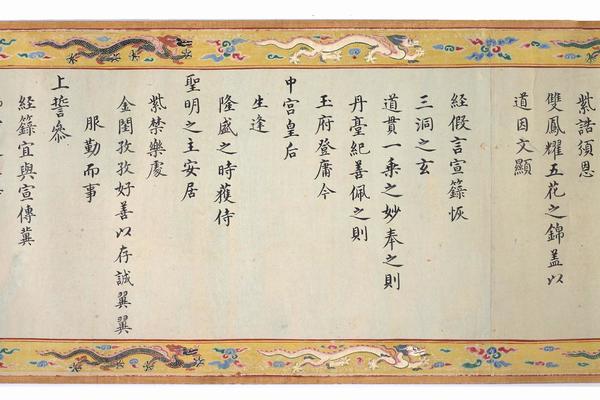 紫誥須恩
雙鳳耀五花之錦盖以
道因文顯
經假言宣籙恢
三洞之玄
道貫一乗之妙奉之則
丹臺紀善佩之則
玉府登庸今
中宮皇后
生逢
隆盛之時獲侍
聖明之主安居
紫禁樂處
金閨孜孜好善以存誠翼翼
服勤而事
上誓叅
經籙宜與宣傳冀